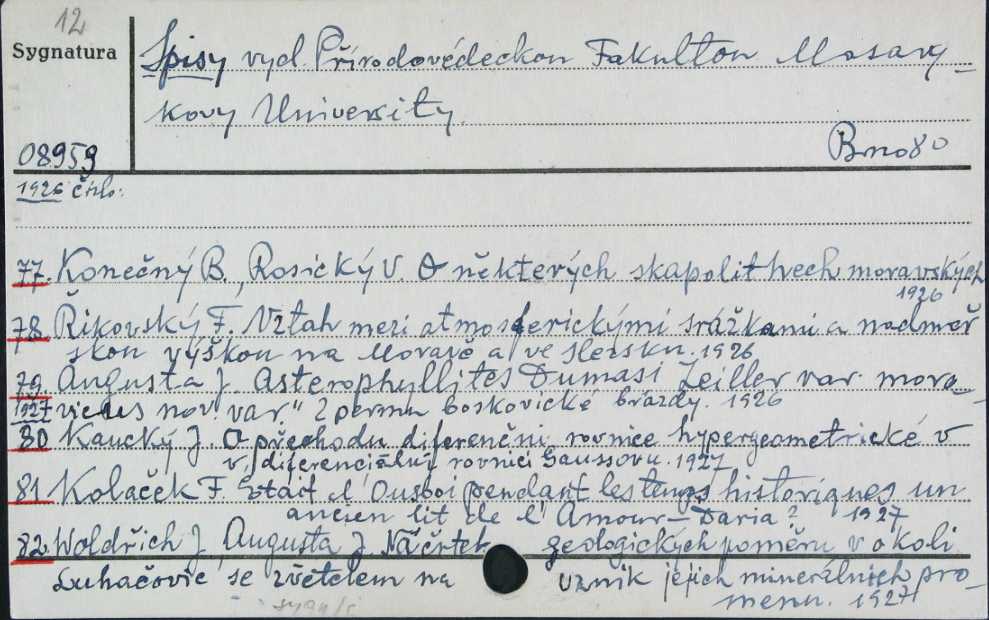 12
Sygnatura
Spisy vyd. Přírodovédeckou Fakultou Masary-
kovy University.
08959
Brno 80
1926 číslo:
77. Konečný B., Rosický V. O některých skapolit hech moravských
1926
78. Řikovský F. Vztah mezi atmosferickými srážkami a nadmoř
skou výškou na Moravě a ve Slezsku. 1926
79. Augusta J. Asterophyllites Dumasi Zeiller var. mora-
1927 vicus nov. var." Z permu boskovické brázdy. 1926
80 Kaucký J. O přechodu diferenčni rovnice hypergeometrické v
v. diferenciálný rovnici Gaussovu. 1927
81. Kolaček F. Etait l'Ousboi pendant les temps historiques un
ancien lit de l'Amour-Daria? 1927
82. Woldřich J. Augusta J. Náčrtek geologických poměru v okoli
Luhačovic se zvětelem na vznik jejich minerálnich pro-
menu. 1927